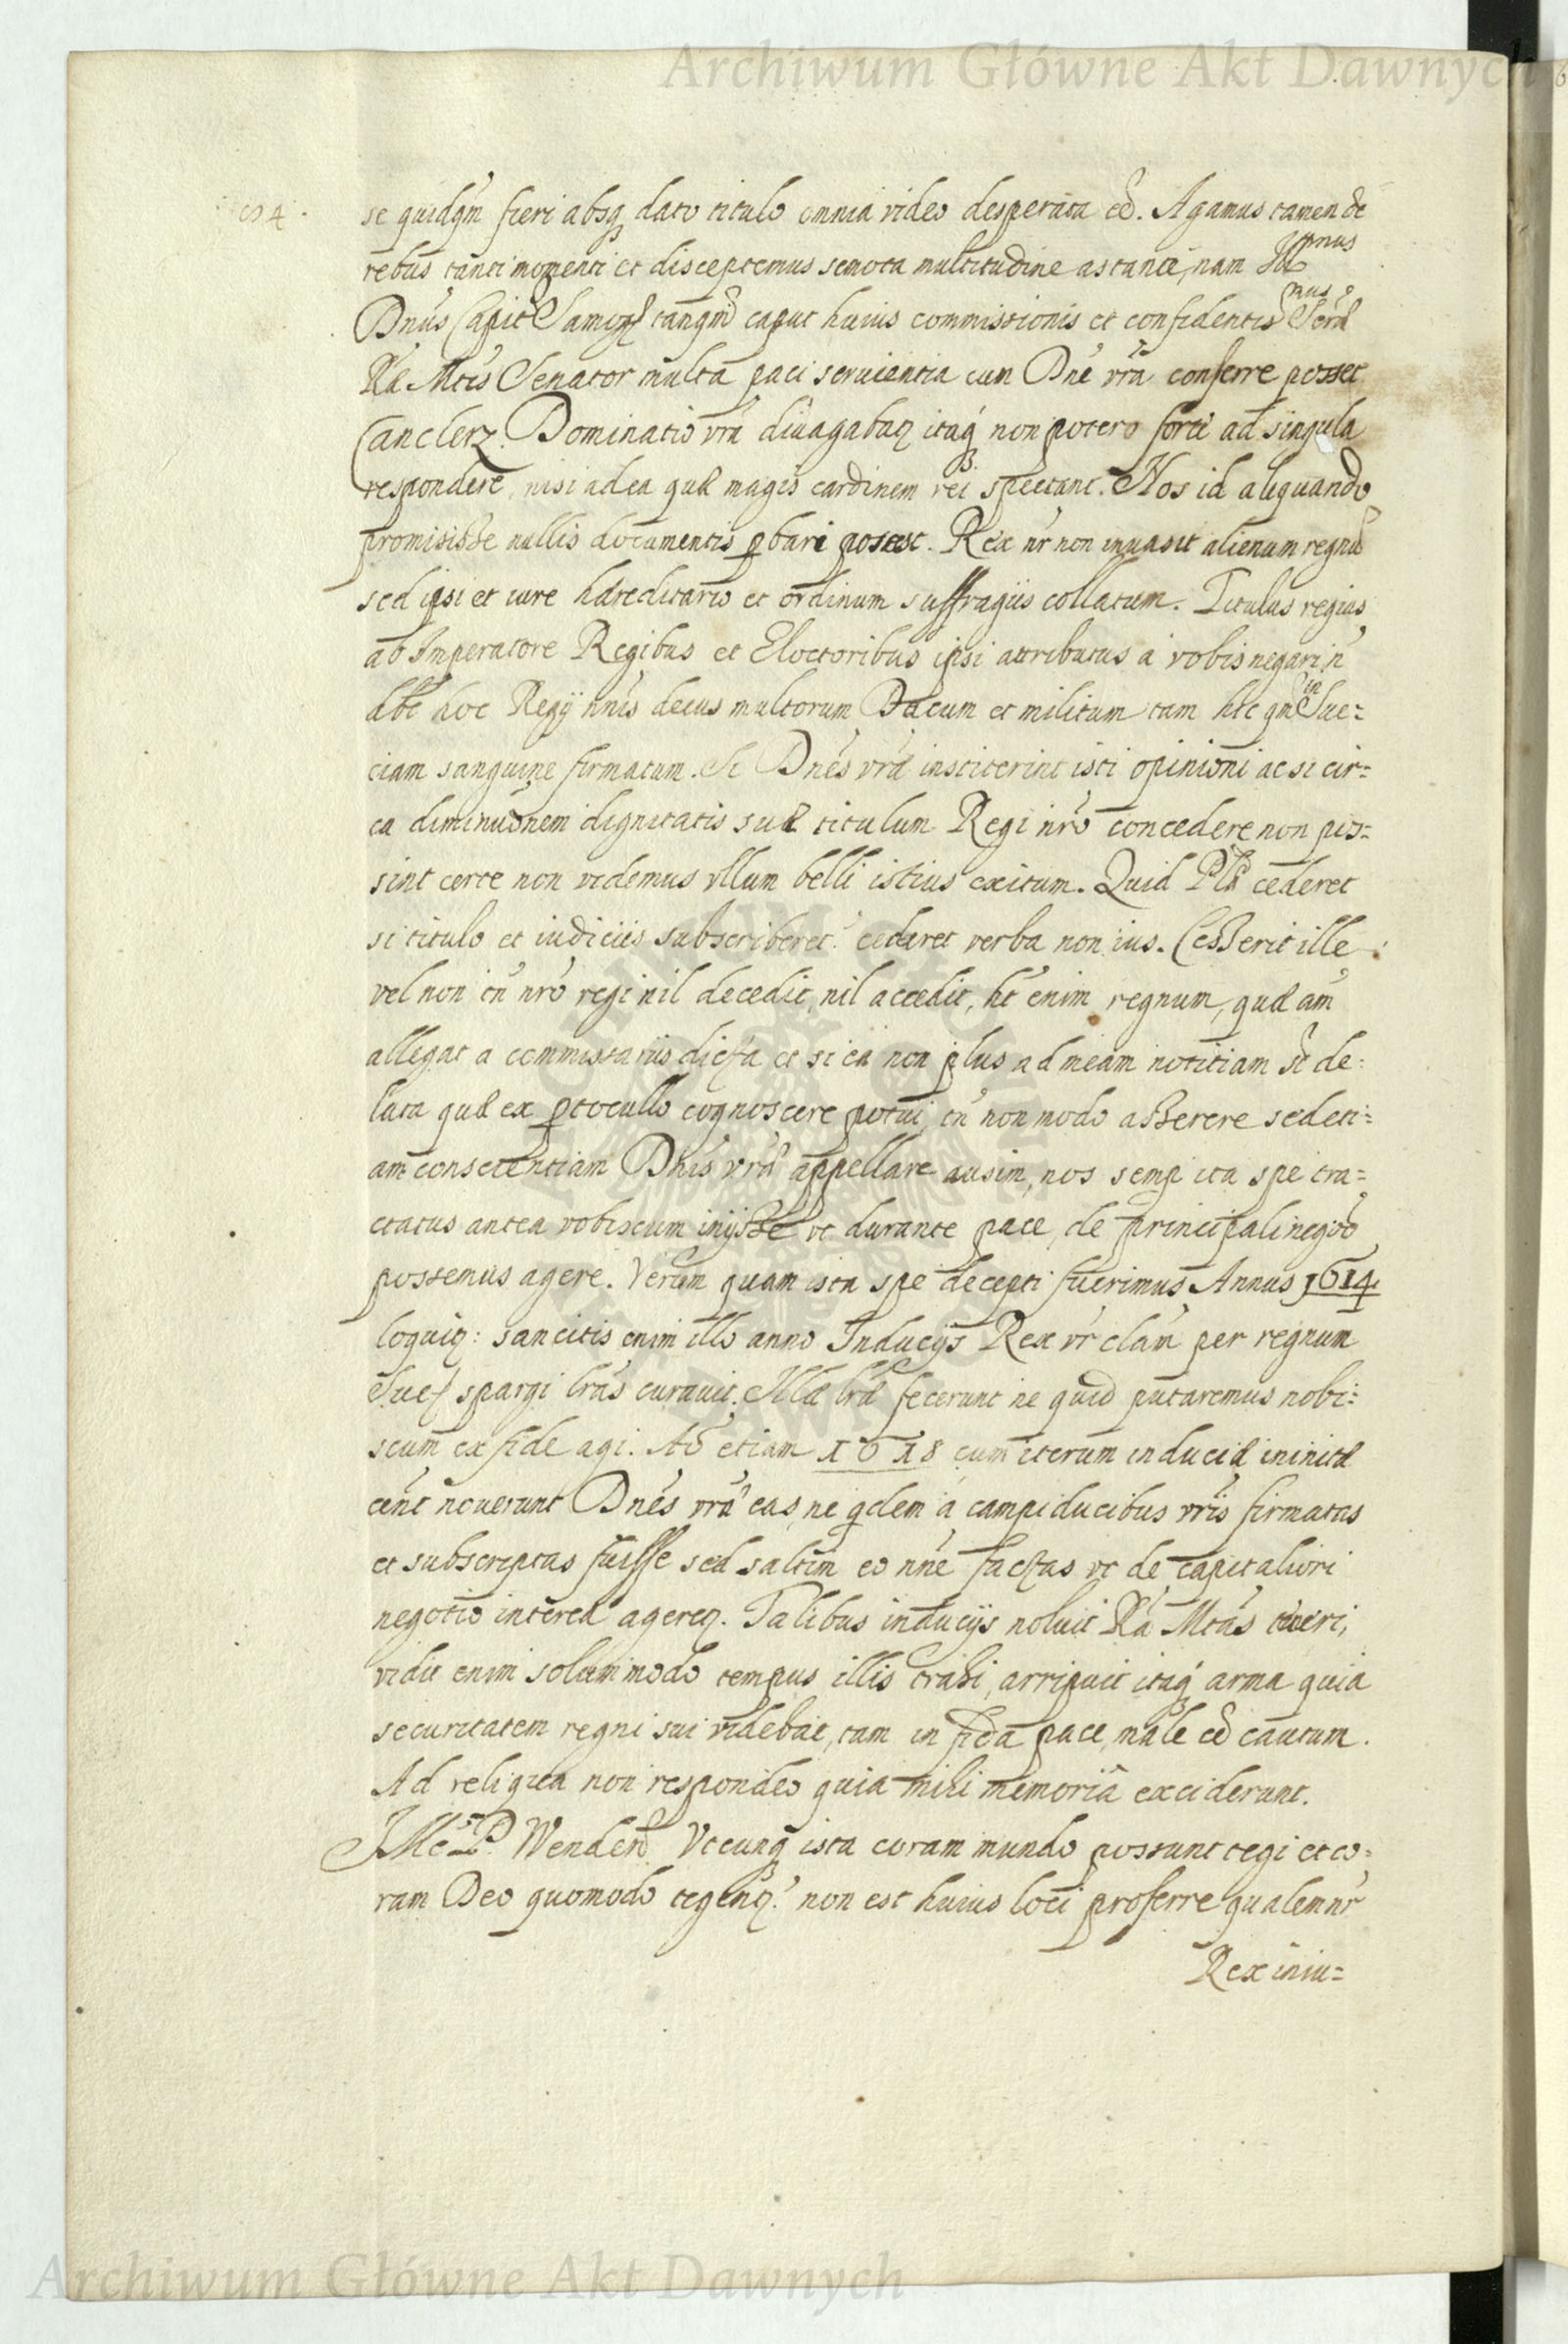 Archiwum Główne Akt Dawnych
se quidq̃m fieri absq dato titulo omnia video desperata eẽ. Agamus tamen de
rebus tanti momenti et disceptemus semota multitudine astantĩ, nam Illmus
Dnus Capit Samog tanqm̃ caput huius commissionis et confidentis Sermæ
Ræ Mtis Senator multa paci servientia cum Dne vrã conferre posset
Canclerz. Dominatio vrã divagabaꝛ itaq́ non potero forte ad singula
respondere, nisi ad ea quæ magis cardinem rei spectant. Nos id aliquando
promisisse nullis documentis ꝓbari potest. Rex nr non invasit alienum regnũ
sed ipsi et iure hæreditario et ordinum suffragiis collatum. Titulus regius
ab Imperatore Regibus et Electoribus ipsi attributus a vobis negari ñ
dbt hoc Regij nñis decus multorum Ducum et militum tam hic qm̃ in Sue=
ciam sanguine firmatum. Si Dnẽs vrã institerint isti opinioni ac si cir=
ca diminuõnem dignitatis suæ titulum Regi nrõ concedere non pos=
sint certe non videmus ullum belli istius exitum. Quid cederet
si titulo et iudiciis subscriberet? cederet verba non ius. Cesserit ille
vel non tñ nrõ regi nil decedit, nil accedit, ht enim regnum, quæ aũt
allegat a commissariis dicta et si ea non plus ad meam notitiam st de=
lata quæ ex ꝓtocullo cognoscere potui, tñ non modo asserere sed eti=
am conscientiam Dnis vræ appellare ausim, nos semp ita spe tra=
ctatus antea vobiscum inijsse ut durante pace, de principali negoõ
possemus agere. Verum quam ista spe decepti fuerimus Annus 1614
loquiꝛ: sancitis enim illo anno Inducijs Rex vr clam per regnum
Sueç spargi lras curavit. Illæ lræ fecerunt ne quid putaremus nobi=
scum ex fide agi. Aõ etiam 1618 cum iterum induciæ initæ
eent noverunt Dnes vræ eas, ne qdem a campiducibus vris firmatas
et subscriptas fuisse sed saltim eo nñe factas ut de capitaliori
negotio interea agereꝛ. Talibus inducijs noluit Ra Mtas tueri,
vidit enim solummodo tempus illis trahi, arripuit itaq́ arma quia
securitatem regni sui videbat, tam infida pace, male eẽ cautum.
Ad reliqua non respondeo quia mihi memoriâ exciderunt.
JMcP Wendeñ Utcunq ista coram mundo possunt tegi et co=
ram Deo quomodo tegenꝛ? non est huius loci proferre qualem nr
Rex iniu=
Archiwum Główne Akt Dawnych